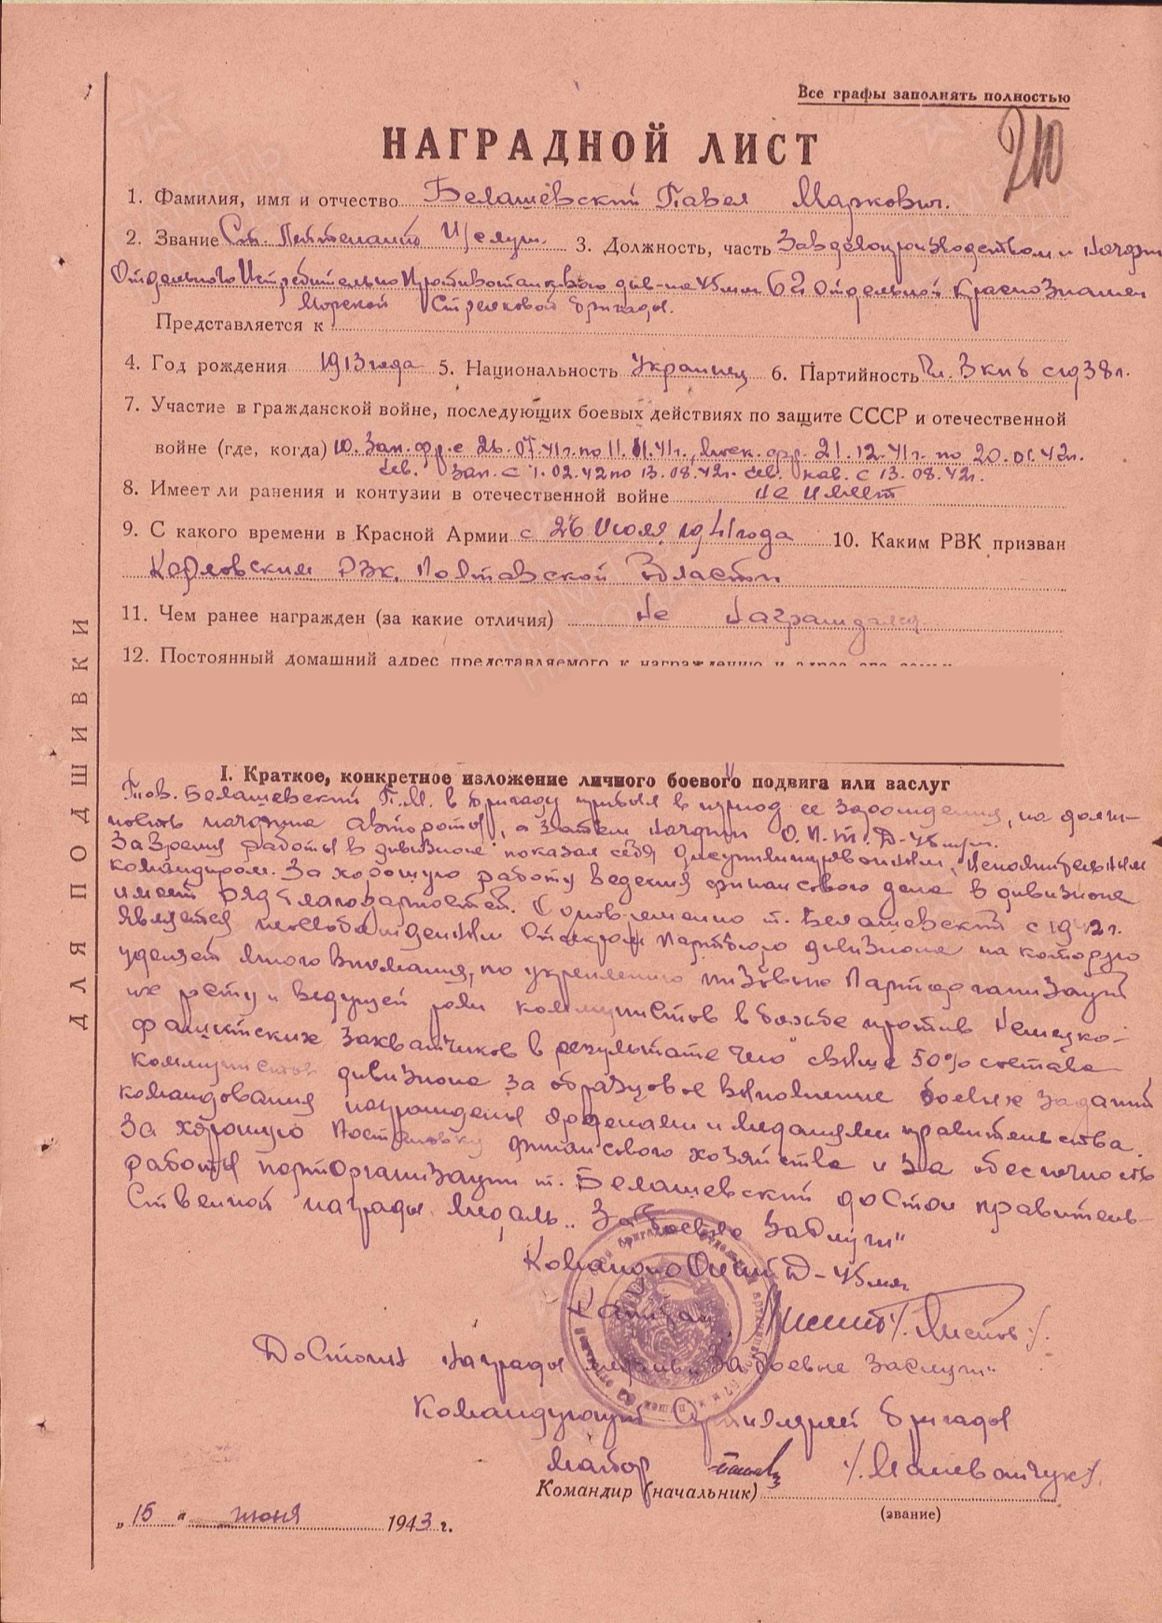 Все графы заполнять полностью
210
НАГРАДНОЙ ЛИСТ
1. Фамилия, имя и отчество Белашевский Павел Маркович.
2. Звание Ст. Лейтенант И/служ. 3. Должность, часть Завделопроизводством и Начфин
Отдельного Истребительно Противотанкового див-на 45мм 62 Отдельной Краснознамен
Морской Стрелковой бригады.
Представляется к
4. Год рождения 1913 года 5. Национальность Украинец 6. Партийность Чл. ВКПб с 1938г.
7. Участие в гражданской войне, последующих боевых действиях по защите СССР и отечественной
войне (где, когда) Ю. Зап. фр. с 26.07.41г. по 11.11.41г., фр. 21.12.41г. по 20.01.42г.
Сев. Зап. с 1.02.42 по 13.08.42г. Сев. Кав. с 13.08.42г.
8. Имеет ли ранения и контузии в отечественной войне не имеет
9. С какого времени в Красной Армии с 26 Июля 1941 года 10. Каким РВК призван
Карловским РВК, Полтавской Области
11. Чем ранее награжден (за какие отличия) Не Награждался
12. Постоянный домашний адрес представляемого к награждению и адрес его семьи
ДЛЯ ПОДШИВКИ
I. Краткое, конкретное изложение личного боевого подвига или заслуг
Тов. Белашевский П.М. в бригаду прибыл в период ее зарождения, на долж-
ность начфина автороты, а затем Начфин О.И.П.Т.Д-45мм.
За время работы в дивизионе показал себя дисциплинированным, исполнительным
командиром. За хорошую работу ведения финансового дела в дивизионе
имеет ряд благодарностей. Одновременно т. Белашевский с 1942г.
является неосвобожденным Отсекром Партбюро дивизиона на которую
уделяет много внимания, по укреплению низовых Парторганизаций
их росту и ведущей роли коммунистов в борьбе против Немецко-
фашистских захватчиков в результате чего свыше 50% состава
коммунистов дивизиона за образцовое выполнение боевых заданий
командования награждены орденами и медалями правительства.
За хорошую постановку финансового хозяйства и за обеспечность
работы парторганизации т. Белашевский достоин правитель-
ственной награды медаль „За боевые Заслуги"
Командир Д-45мм
Капитан /Листов/.
Достоин награды медаль „За боевые заслуги"
Командующий Артиллерией бригады
майор /Маневатчук/.
Командир (начальник)
(звание)
„15" июня 1943 г.